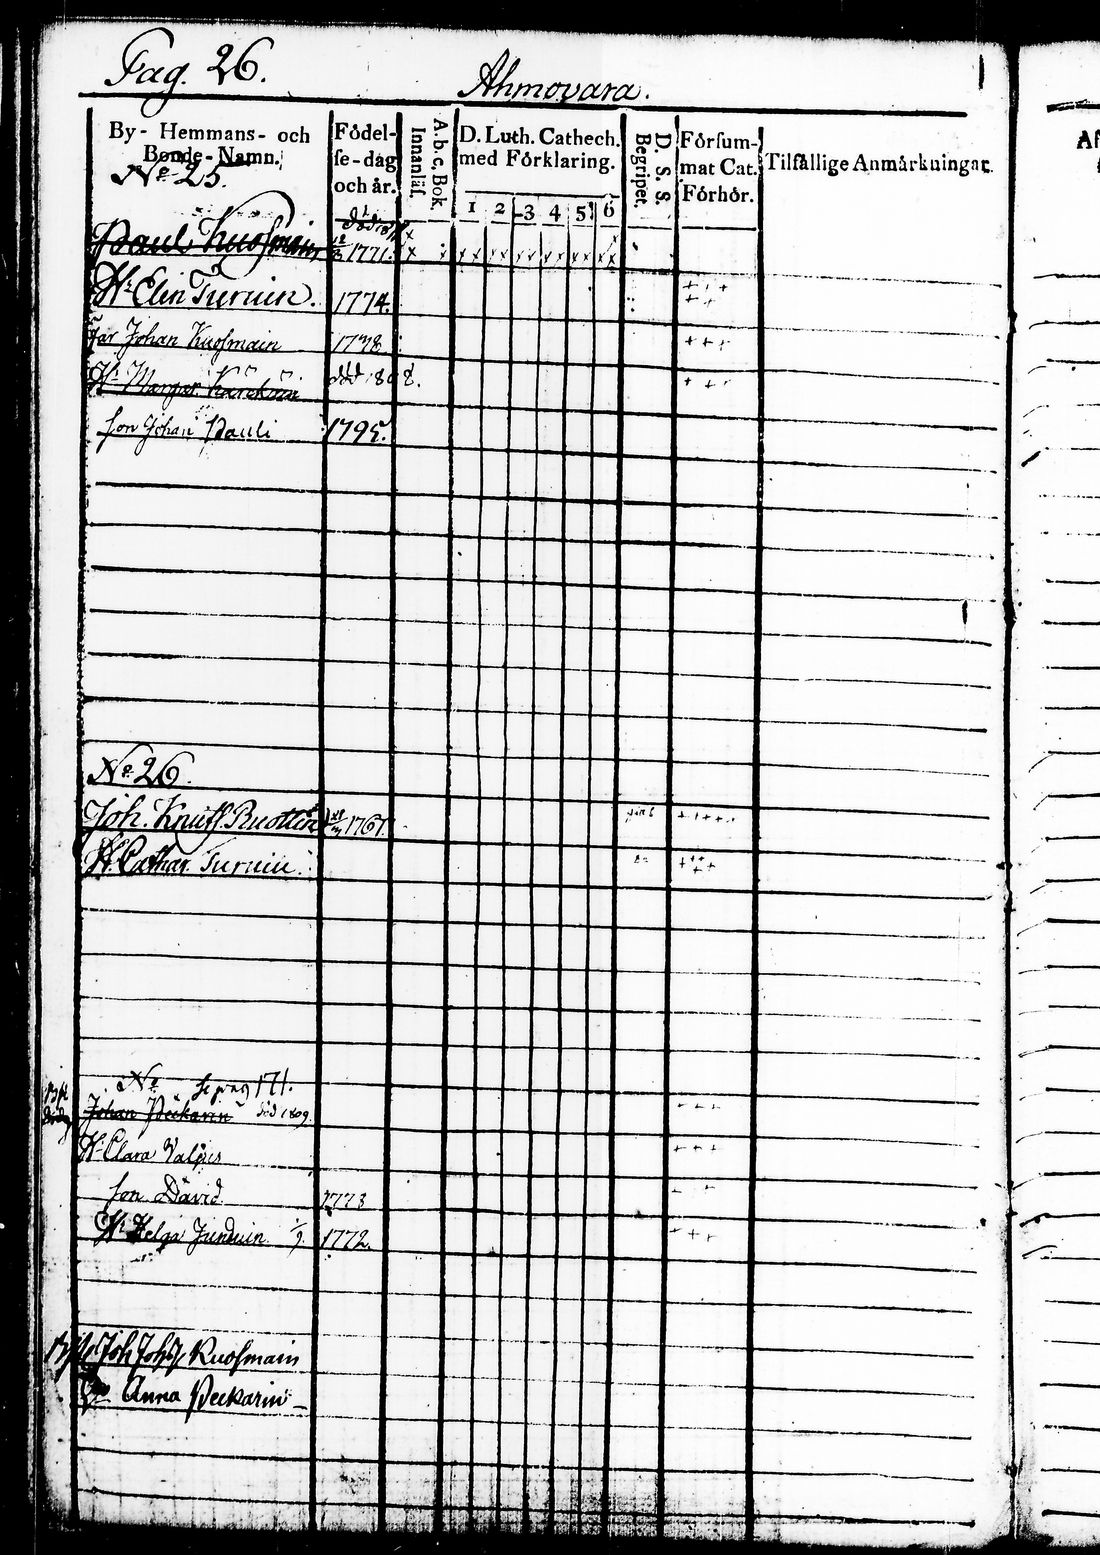 Pag. 26.
Ahmovara.
By- Hemmans- och Bonde-Namn.
Födel-se-dag och år.
A.b.c. Bok Innanläs.
D. Luth. Cathech. med Förklaring.
1 2 3 4 5 6
D. S. S. Begripet.
Försum-mat Cat. Förhör.
Tilfällige Anmärkningar.
No 25.
Paul Kuosmain 1771. död
x x x x x x x x x x x x
H. Elin Turuin. 1774. + + + + +
Far Johan Kuosmain + + +
H. Margar. död 1808. + + +
son Johan Pauli 1795.
No 26.
Joh. Knuts. Ruottin 1767.
H. Cathar. Turuin. + + + + +
No se pag 171.
Johan Peckarin död 1809. - - -
H. Clara Valpis + + +
son David 1773
H. Helga 1772. + + +
Joh Johs Kuosmain
Anna Peckarin